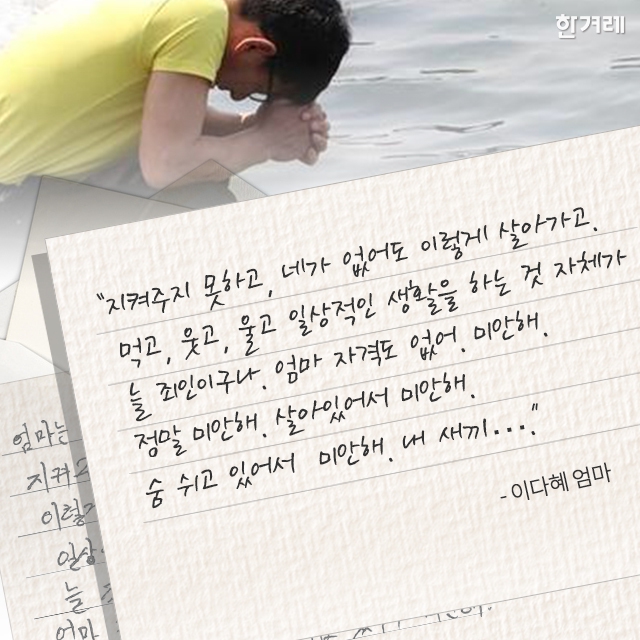 한겨레
"지켜주지 못하고, 네가 없어도 이렇게 살아가고.
먹고, 웃고, 울고 일상적인 생활을 하는 것 자체가
늘 죄인이구나. 엄마 자격도 없어. 미안해.
정말 미안해. 살아있어서 미안해.
숨 쉬고 있어서 미안해. 내 새끼..."
- 이다혜 엄마
엄마는
지켜
이렇게
일상
늘
엄마